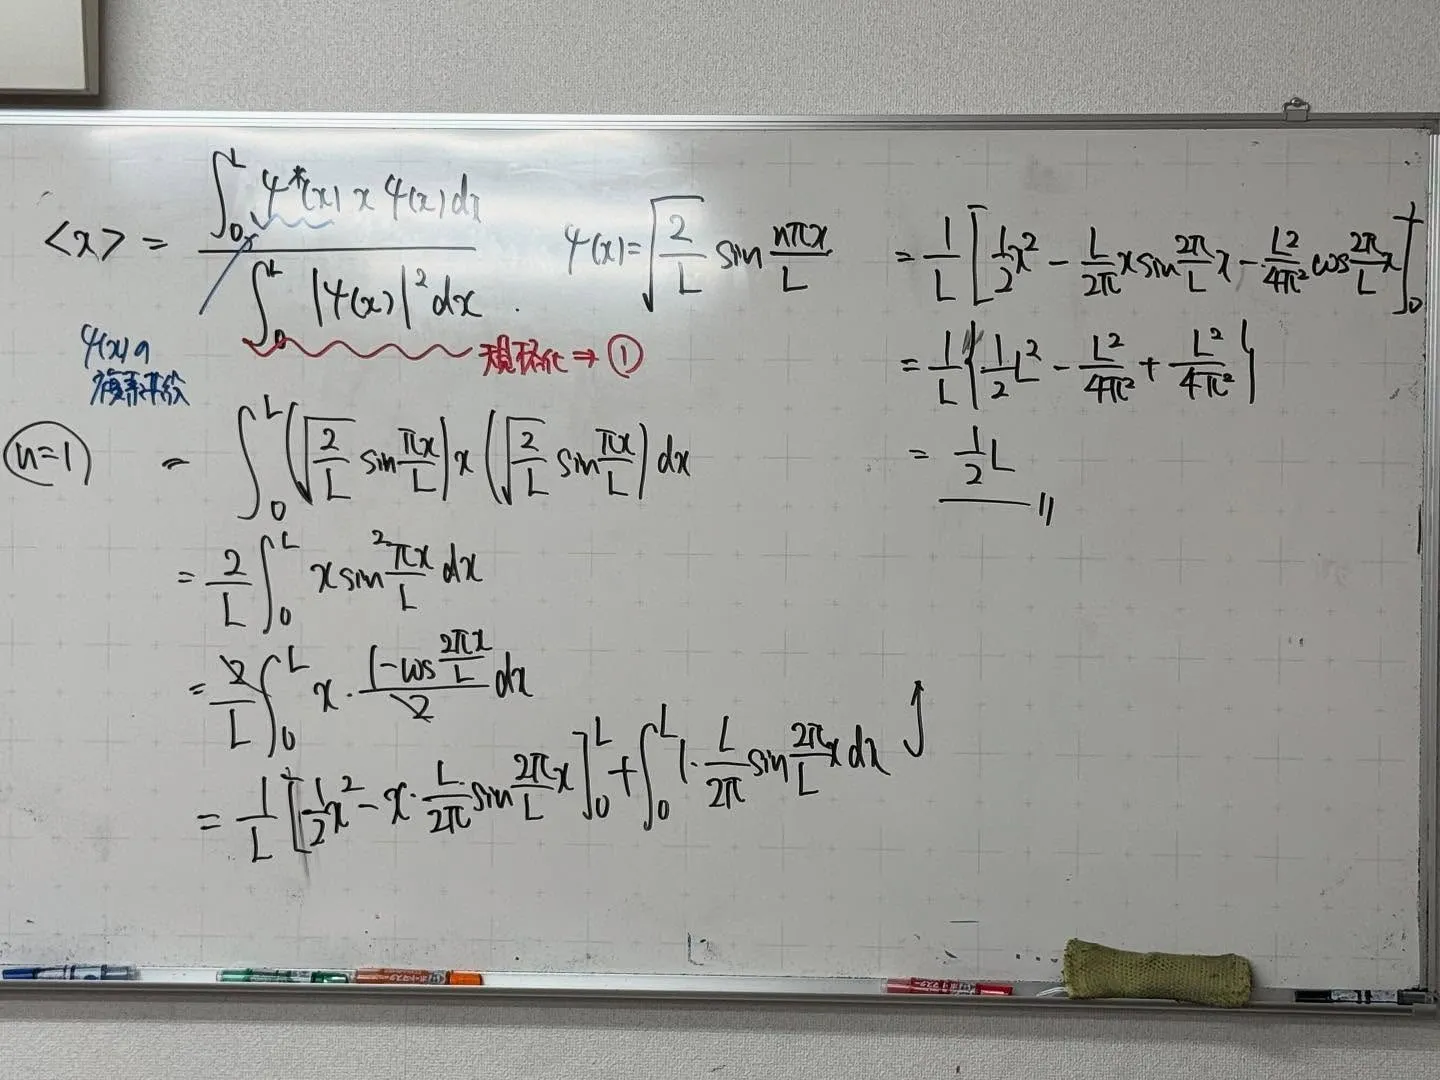 <x> = ∫₀ᴸ ψ*(x) x ψ(x) dx / ∫₀ᴸ |ψ(x)|² dx .
ψ(x) = √(2/L) sin nπx/L
ψ(x)の
複素共役
規格化 ⇒ ①
n=1
= ∫₀ᴸ (√(2/L) sin πx/L) x (√(2/L) sin πx/L) dx
= 2/L ∫₀ᴸ x sin² πx/L dx
= 2/L ∫₀ᴸ x · (1-cos 2πx/L)/2 dx
= 1/L [1/2 x² - x · L/2π sin 2π/L x]₀ᴸ + ∫₀ᴸ 1 · L/2π sin 2π/L x dx
= 1/L [1/2 x² - L/2π x sin 2π/L x - L²/4π² cos 2π/L x]₀ᴸ
= 1/L {1/2 L² - L²/4π² + L²/4π²}
= 1/2 L